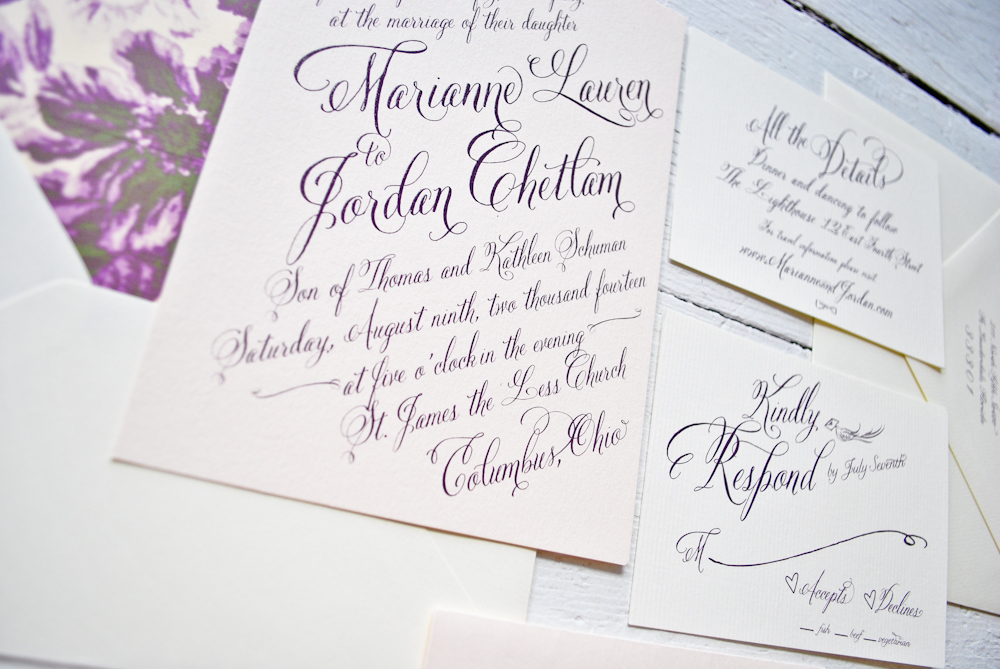 at the marriage of their daughter
Marianne Lauren
to
Jordan Chettam
Son of Thomas and Kathleen Schuman
Saturday, August ninth, two thousand fourteen
at five o'clock in the evening
St. James the Less Church
Columbus, Ohio
All the Details
Dinner and dancing to follow
The Lighthouse 12 East Fourth Street
For travel information please visit
www.MarianneandJordan.com
Kindly,
Respond by July Seventh
M
Accepts Declines
fish beef vegetarian